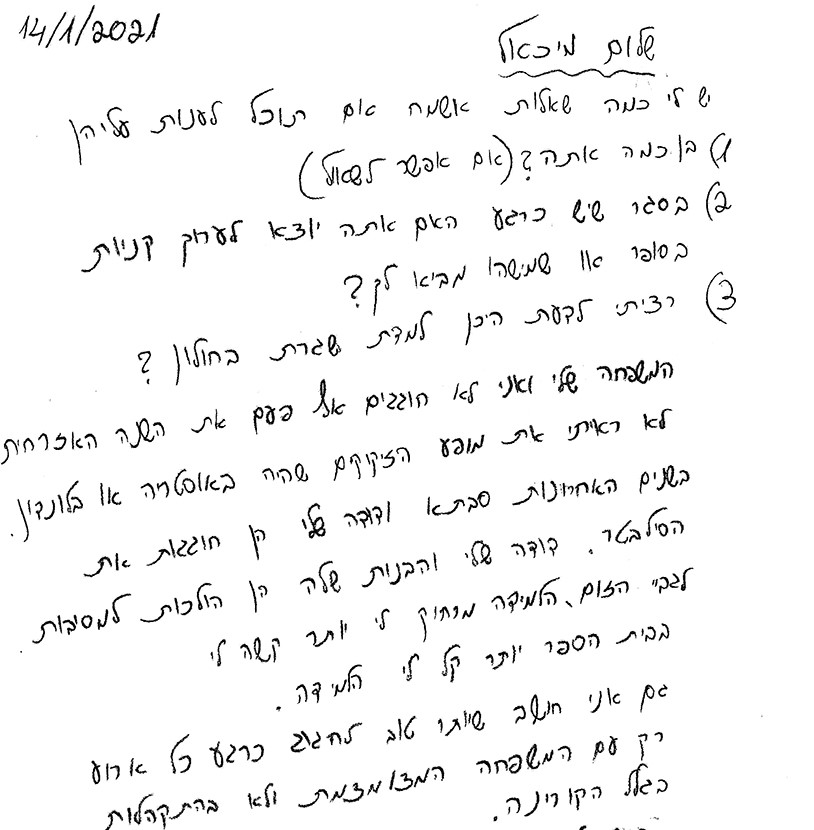 14/1/2021
שלום מיכאל
יש לי כמה שאלות אשמח אם תוכל לענות עליהן
1) בן כמה אתה? (אם אפשר לשאול)
2) בסגר שיש כרגע האם אתה יוצא לערוך קניות
בסופר או שמישהו מביא לך?
3) רציתי לדעת היכן למדת שגרת בחולון?
המשפחה שלי ואני לא חוגגים אף פעם את השנה האזרחית
לא ראיתי את מופע הזיקוקים שהיה באוסטריה או בלונדון.
בשנים האחרונות סבתא ודודה שלי הן חוגגות את
הסילבטר. דודה שלי והבנות שלה הן הולכות למסיבות.
לגביי הזום, הלמידה מרחוק לי יותר קשה לי
בבית הספר יותר קל לי הלמידה.
גם אני חושב שיותר טוב לחגוג כרגע כל ארוע
רק עם המשפחה המצומצמת ולא בהתקהלות
בגלל הקורינה.